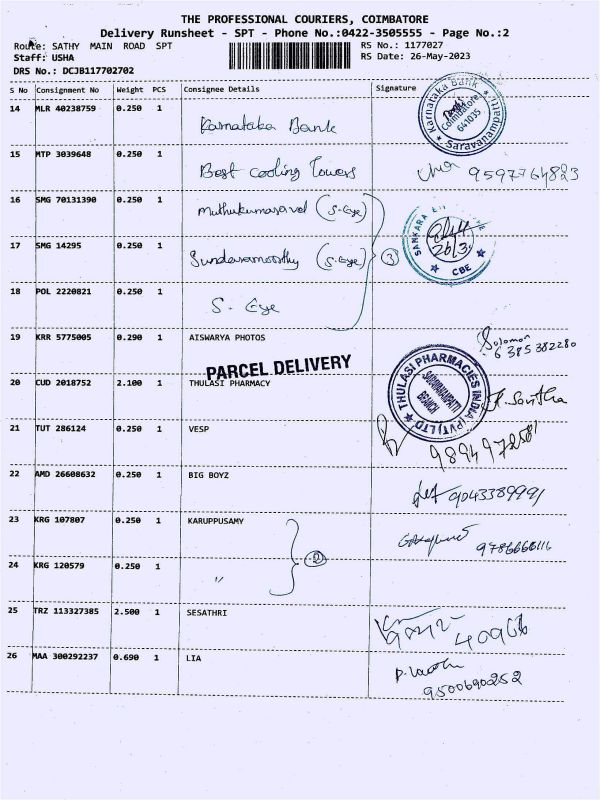 THE PROFESSIONAL COURIERS, COIMBATORE
Delivery Runsheet - SPT - Phone No.:0422-3505555 - Page No.:2
Route: SATHY MAIN ROAD SPT
RS No.: 1177027
Staff: USHA
RS Date: 26-May-2023
DRS No.: DCJB117702702
S No Consignment No Weight PCS Consignee Details Signature
14 MLR 40238759 0.250 1 Karnataka Bank
Karnataka Bank
Coimbatore
641035
Saravanampatti
15 MTP 3039648 0.250 1 Best cooling Towers 9597764823
16 SMG 70131390 0.250 1 Muthukumaravel (S-Eye)
17 SMG 14295 0.250 1 Sundaramoorthy (S-Eye) 3
SANKARA
CBE
18 POL 2220821 0.250 1 S. Eye
19 KRR 5775005 0.290 1 AISWARYA PHOTOS Solomon
6385382280
PARCEL DELIVERY
20 CUD 2018752 2.100 1 THULASI PHARMACY
THULASI PHARMACIES INDIA (PVT) LTD
SARAVANAMPATTI
BRANCH
21 TUT 286124 0.250 1 VESP
22 AMD 26608632 0.250 1 BIG BOYZ 9043389991
23 KRG 107807 0.250 1 KARUPPUSAMY
2
9786666116
24 KRG 120579 0.250 1 〃
25 TRZ 113327385 2.500 1 SESATHRI
26 MAA 300292237 0.690 1 LIA
9500690252